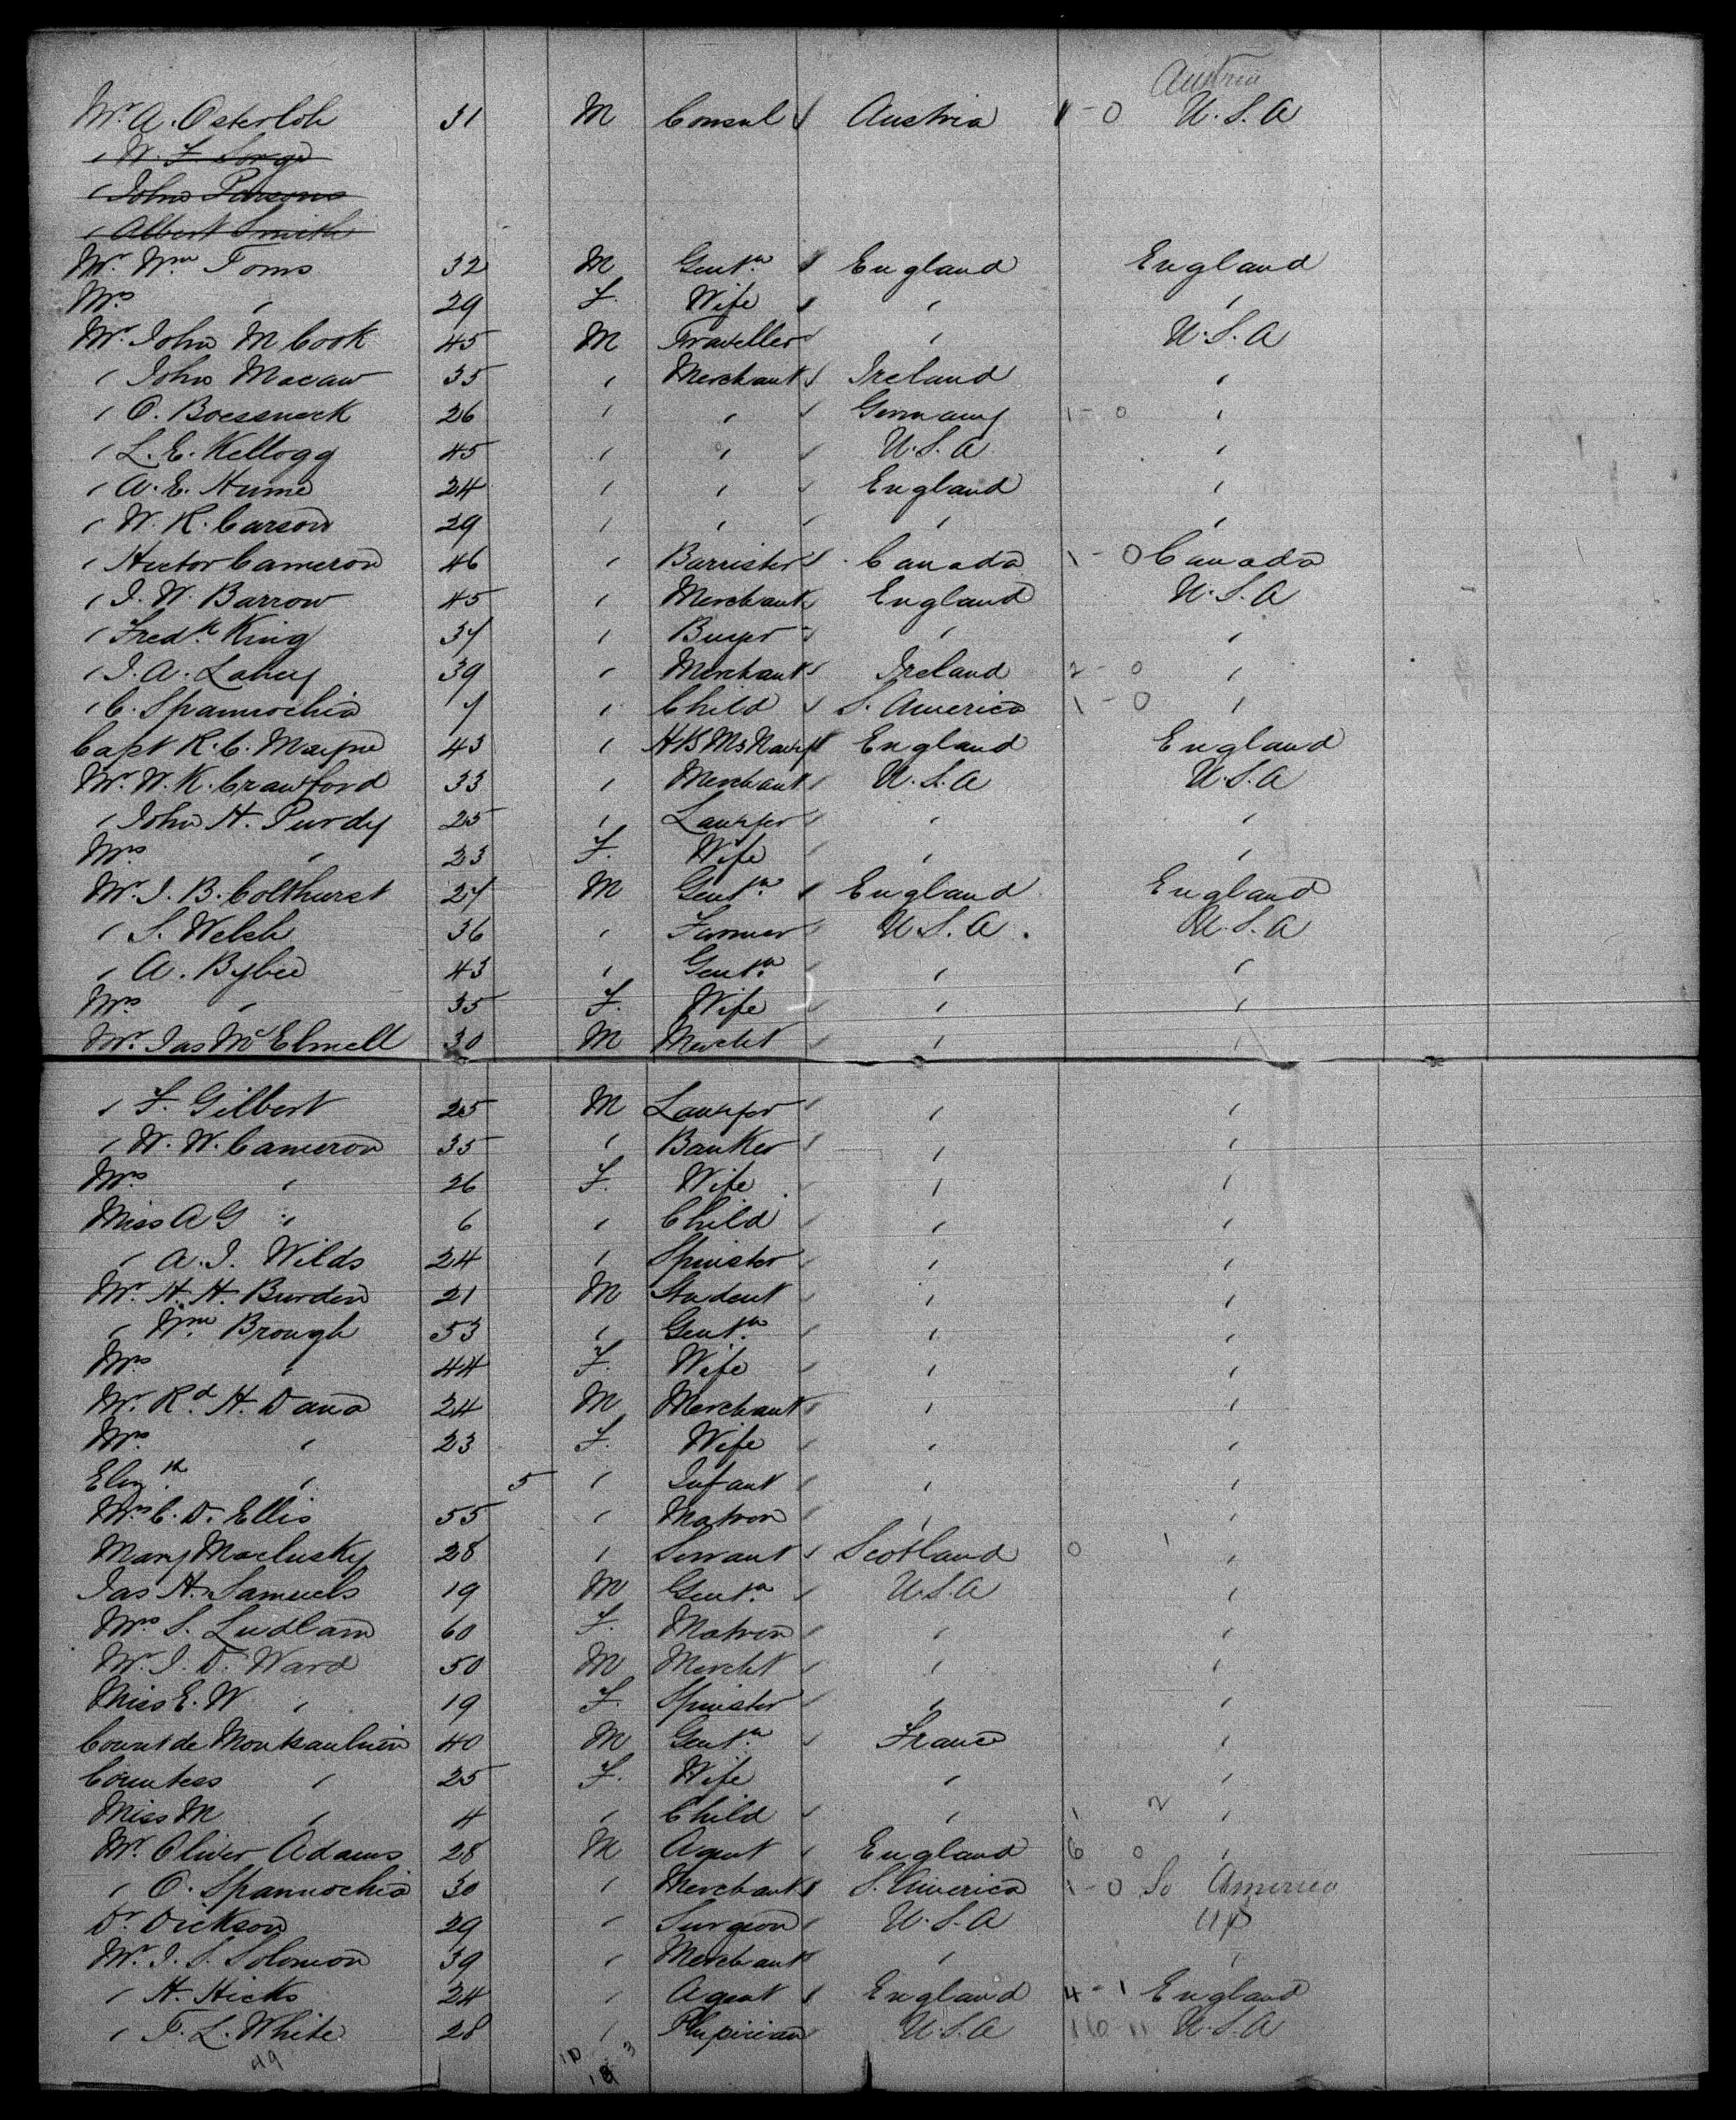 Austria
Mr. A. Osterloh 31 M Consul Austria 1 - 0 U.S.A
" W. F. Sorge
" John Parsons
" Albert Smith
Mr. Wm Toms 32 M Gentn England England
Mrs " 29 F. Wife " "
Mr. John M Cook 45 M Traveller " U.S.A
" John Macaw 35 " Merchant Ireland "
" O. Boessneck 26 " " Germany 1 - 0 "
" L. E. Kellogg 45 " " U.S.A "
" A. E. Hume 24 " " England "
" W. R. Carson 29 " " " "
" Hector Cameron 46 " Barrister Canada 1 - 0 Canada
" J. W. Barrow 45 " Merchant England U.S.A
" Fredk King 37 " Buyer " "
" J. A. Lahey 39 " Merchant Ireland 2 - 0 "
" C. Spannochia 7 " Child S. America 1 - 0 "
Capt R. C. Mayne 43 " H B Ms Navy England England
Mr. W. K. Crawford 33 " Merchant U.S.A U.S.A
" John H. Purdy 25 " Lawyer " "
Mrs " 23 F. Wife " "
Mr. J. B. Colthurst 27 M Gentn England England
" S. Welch 36 " Farmer U.S.A. U.S.A
" A. Bybee 43 " Gentn " "
Mrs " 35 F. Wife " "
Mr. Jas McElmell 30 M Mercht " "
" F. Gilbert 25 M Lawyer " "
" W. W. Cameron 35 " Banker " "
Mrs " 26 F. Wife " "
Miss A G " 6 " Child " "
" A. J. Wilds 24 " Spinster " "
Mr. H. H. Burden 21 M Student " "
" Wm Brough 53 " Gentn " "
Mrs " 44 F. Wife " "
Mr. Rd H. Dana 24 M Merchant " "
Mrs " 23 F. Wife " "
Elizth " 5 " Infant " "
Mrs C. D. Ellis 55 " Matron " "
Mary Maclusky 28 " Servant Scotland 0 1 "
Jas H. Samuels 19 M Gentn U.S.A "
Mrs S. Ludlam 60 F. Matron " "
Mr. J. D. Ward 50 M Mercht " "
Miss E. W " 19 F. Spinster " "
Count de Montsaulnin 40 M Gentn France "
Countess " 25 F. Wife " "
Miss M " 4 " Child " 1 2 "
Mr. Oliver Adams 28 M Agent England 6 0 "
" O. Spannochia 30 " Merchant S. America 1 - 0 So America
Dr. Dickson 29 " Surgeon U.S.A US
Mr. J. S. Solomon 39 " Merchant " "
" H. Hicks 24 " Agent England 4 - 1 England
" F. L. White 28 " Physician U.S.A 16 11 U.S.A
49 10 3
19